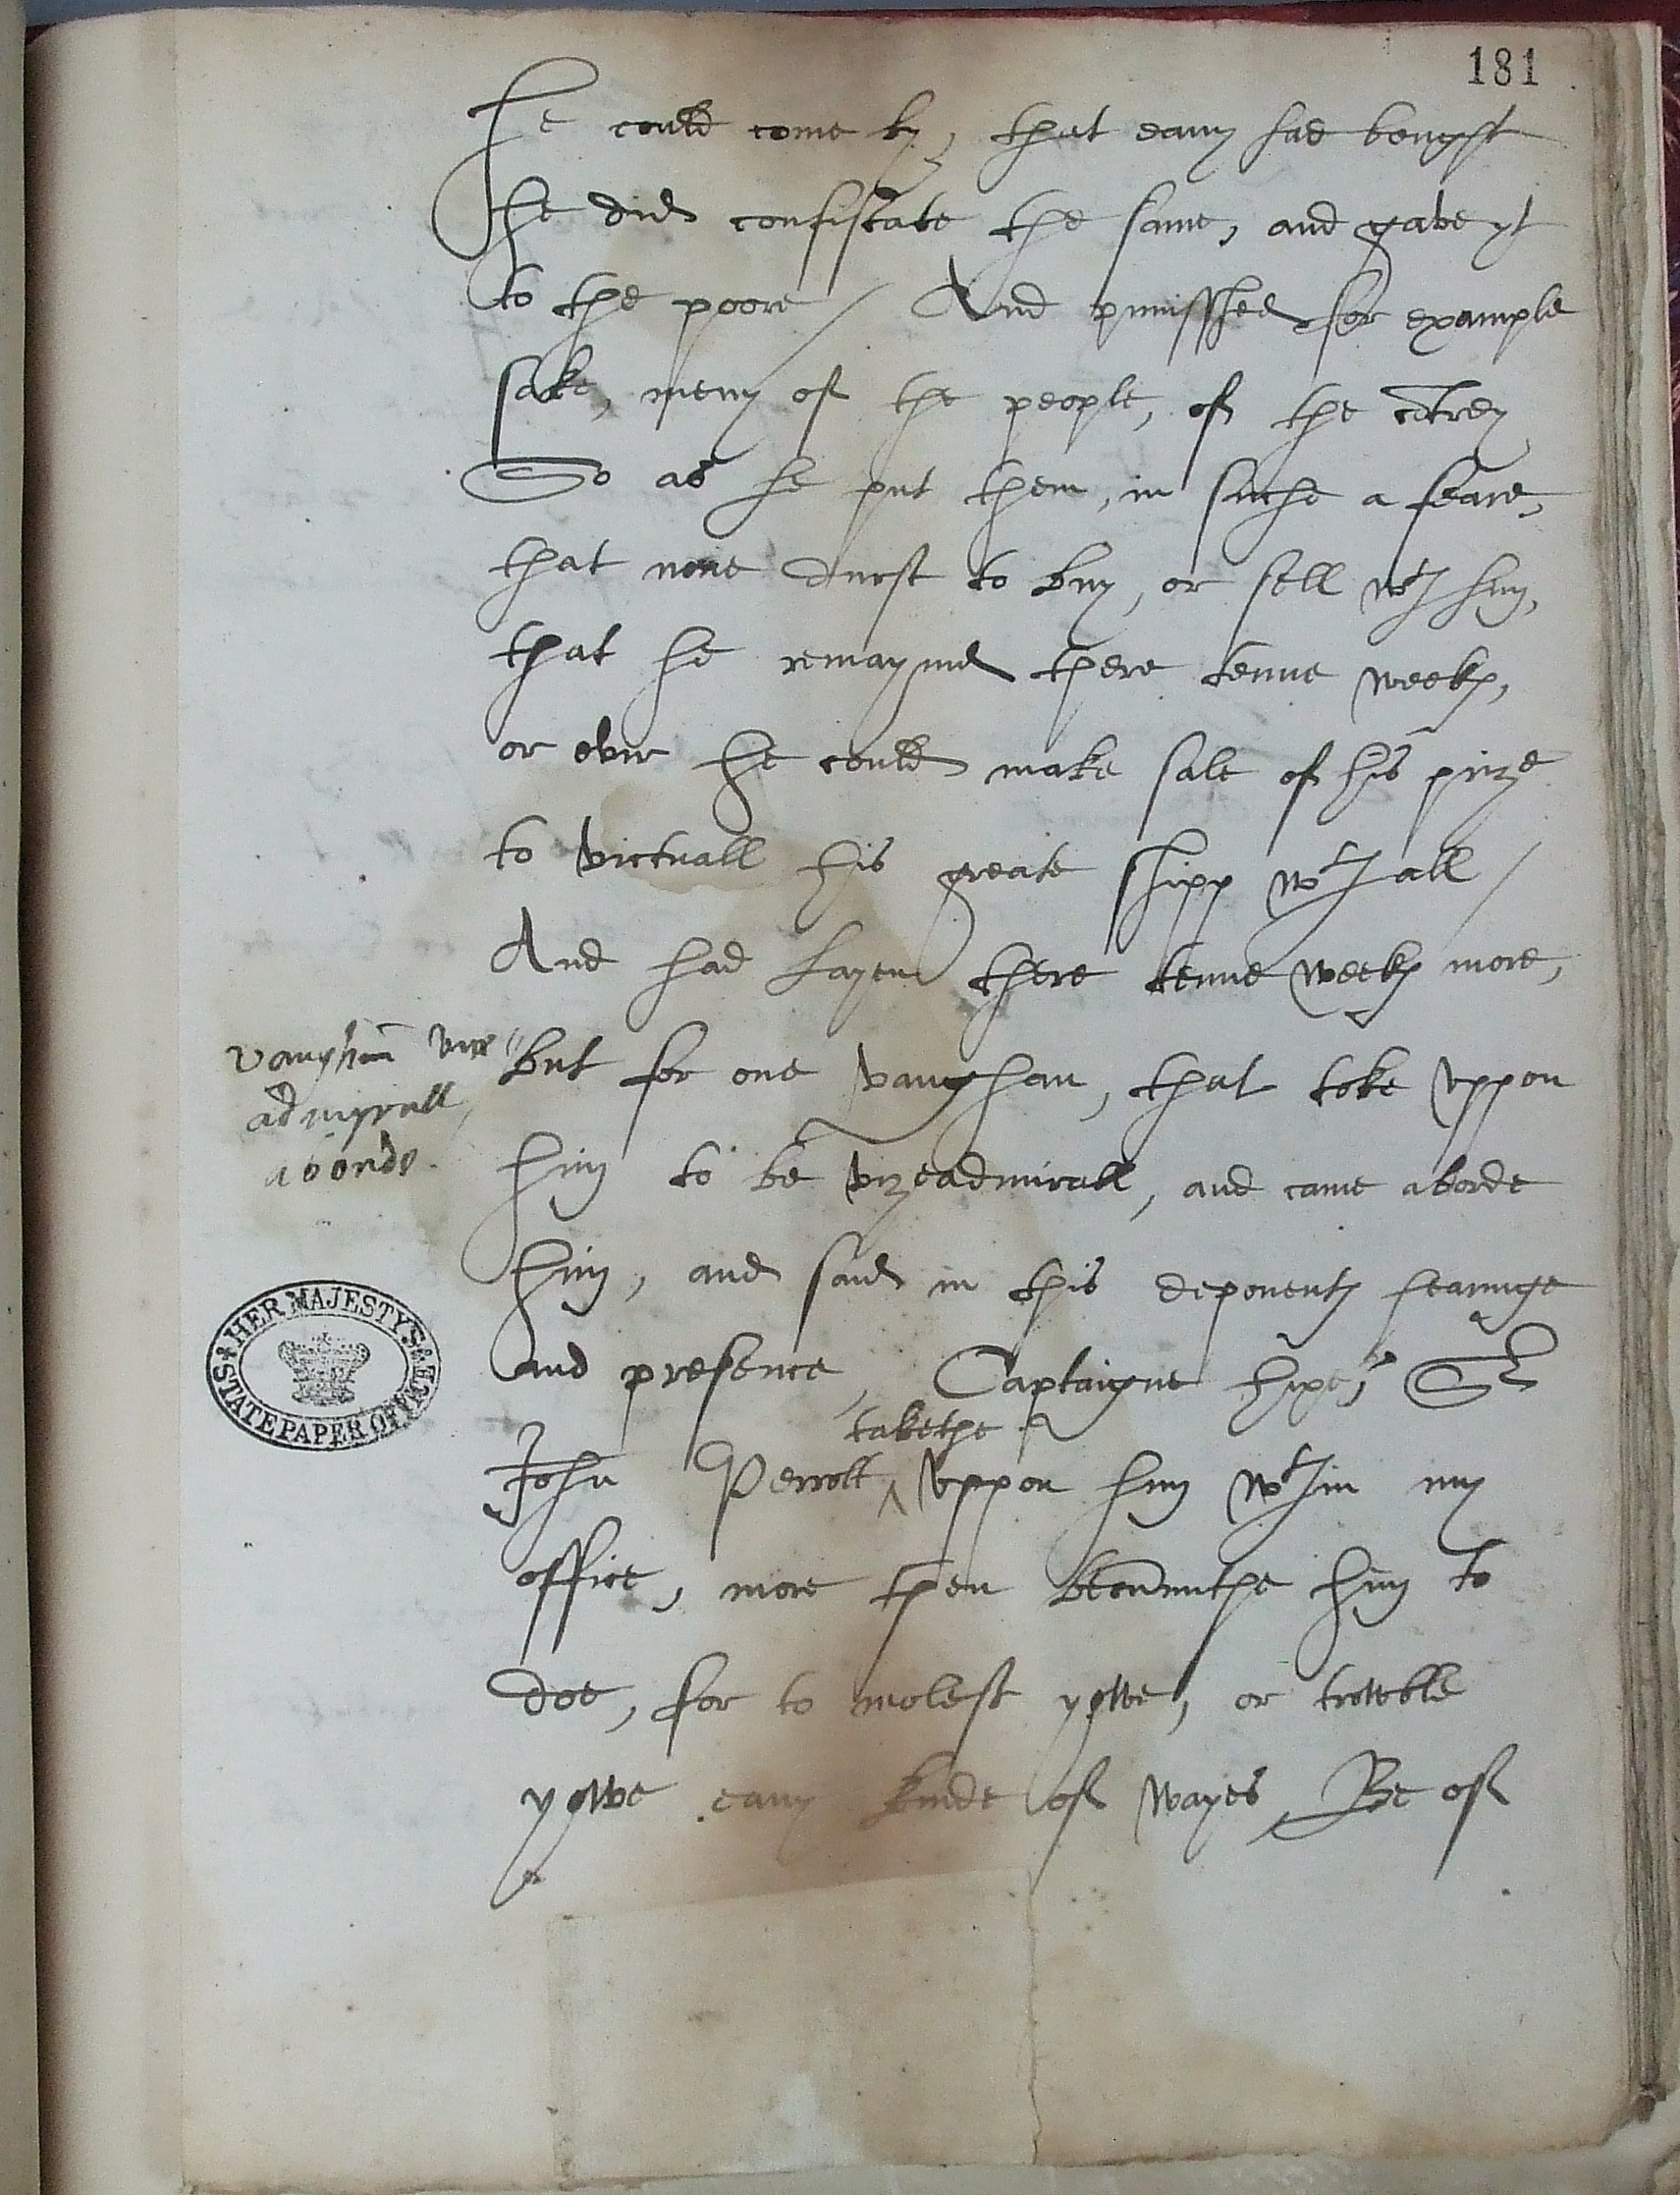 181
he could come by, that eany had bought
he did confiscate the same, and gave yt
to the poore / And punisshed for example
sake, meny of the people, of the cōtrey
So as he put them, in suche a feare,
that none durst to buy, or sell wth hym,
that he remayned there tenne weekes,
or ever he could make sale of his prize
to victuall his greate shipp wthall /
And had Layen there tenne weekes more,
vaughan vice
admyrall
aborde.
But for one vaughan, that toke uppon
hym to be vizeadmirall, and came aborde
hym, and said in this deponents hearinge
and presence, Captaigne hixe, Sr
John Perrott takethe uppon hym wthin my
office, more then becommethe hym to
doe, for to molest yowe, or trowble
yowe eany kinde of wayes, Be of
HER MAJESTY'S
STATE PAPER OFFICE